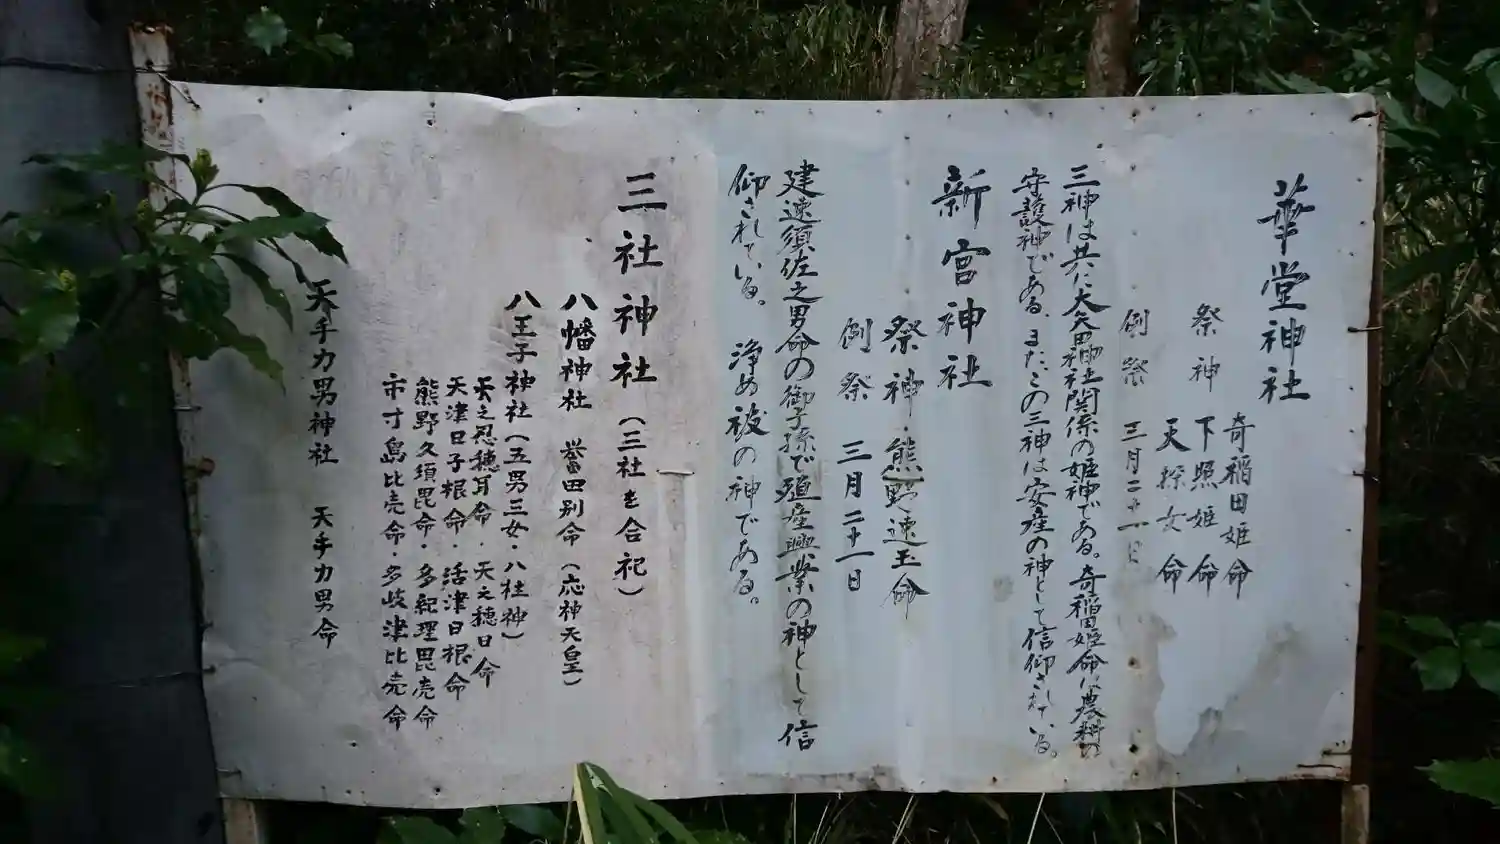 華堂神社
奇稲田姫命
祭神 下照姫命
天探女命
例祭 三月二十一日
三神は共に大矢田神社関係の姫神である。奇稲田姫命は農耕の
守護神である。またこの三神は安産の神として信仰されている。
新宮神社
祭神・熊野速玉命
例祭 三月二十一日
建速須佐之男命の御子孫で殖産興業の神として信
仰されている。浄め祓の神である。
三社神社(三社を合祀)
八幡神社 誉田別命(応神天皇)
八王子神社(五男三女・八柱神)
天之忍穂耳命・天之穂日命
天津日子根命・活津日根命
熊野久須毘命・多紀理毘売命
市寸島比売命・多岐津比売命
天手力男神社 天手力男命